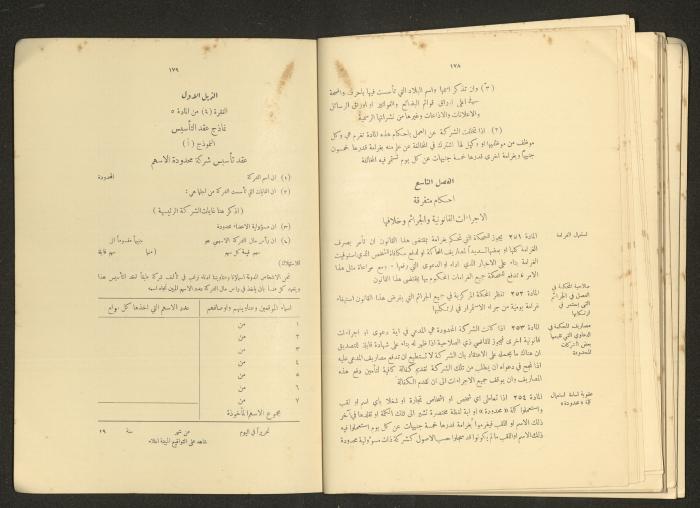 ١٧٨
(٣) وان تذكر اسمها واسم البلاد التي تأسست فيها باحرف واضحة
على اوراق قوائم البضائع والفواتير واوراق الرسائل
والاعلانات والاذاعات وغيرها من نشراتها الرسمية
(٢) اذا تخلفت الشركة عن العمل باحكام هذه المادة تغرم هي وكل
موظف من موظفيها او وكيل لها اشترك في المخالفة عن علم منه بغرامة قدرها خمسون
جنيهاً وبغرامة اخرى قدرها خمسة جنيهات عن كل يوم تستمر فيه المخالفة
الفصل التاسع
احكام متفرقة
الاجراءات القانونية والجرائم وخلافها
استعمال الغرامة
المادة ٢٥١ يجوز للمحكمة التي تحكم بغرامة بمقتضى هذا القانون ان تأمر بصرف
الغرامة كلها او بعضها لتسديد مصاريف المحاكمة او لدفع مكافأة للشخص الذي استوفيت
الغرامة بناء على الاخبار الذي اداه او الدعوى التي رفعها - ومع مراعاة مثل هذا
الامر تدفع للمحكمة جميع الغرامات المحكوم بها بمقتضى هذا القانون
صلاحية المحكمة في
الفصل في الجرائم
التي يستمر في
ارتكابها
المادة ٢٥٢ تنظر المحكمة المركزية في جميع الجرائم التي يفرض هذا القانون استيفاء
غرامة يومية من جراء الاستمرار في ارتكابها
مصاريف المحكمة في
الدعاوي التي تقيمها
بعض الشركات
المحدودة
المادة ٢٥٣ اذا كانت الشركة المحدودة هي المدعي في اية دعوى او اجراءات
قانونية اخرى فيجوز للقاضي ذي الصلاحية اذا ظهر له بناء على شهادة قابلة للتصديق
ان هناك ما يحمله على الاعتقاد بان الشركة لا تستطيع ان تدفع مصاريف المدعى عليه
اذا نجح في دعواه ان يطلب من تلك الشركة تقديم كفالة كافية لتأمين دفع هذه
المصاريف وان يوقف جميع الاجراءات الى ان تقدم الكفالة
عقوبة اساءة استعمال
كلمة «محدودة»
المادة ٢٥٤ اذا تعاطى اي شخص او اشخاص تجارة او شغلا باي اسم او لقب
واستعملوا كلمة «محدودة» او اية لفظة مختصرة تشير الى تلك الكلمة او تقلدها في آخر
ذلك الاسم او اللقب فيغرموا بغرامة قدرها خمسة جنيهات عن كل يوم استعملوا فيه
ذلك الاسم او اللقب ما لم يكونوا قد سجلوا حسب الاصول كشركة ذات مسؤولية محدودة
١٧٩
الذيل الاول
الفقرة (٤) من المادة ٥
نماذج عقد التأسيس
النموذج (أ)
عقد تأسيس شركة محدودة الاسهم
(١) ان اسم الشركة المحدودة
(٢) ان الغايات التي تأسست الشركة من اجلها هي:
(اذكر هنا غايات الشركة الرئيسية)
(٣) ان مسؤولية الاعضاء محدودة
(٤) ان رأس مال الشركة الاسهمي هو جنيهاً مقسوماً الى
سهم قيمة كل سهم (منها سهم قابلة
للاستهلاك)
نحن الاشخاص المدونة اسماؤنا وعناويننا ادناه نرغب في تأليف شركة عملاً بعقد التأسيس هذا
ويتعهد كل منا بان يأخذ في رأس مال الشركة عدد الاسهم المبين تجاه اسمه
اسماء الموقعين وعناوينهم واوصافهم عدد الاسهم التي اخذها كل موقع
١ من
٢ من
٣ من
٤ من
٥ من
٦ من
٧ من
مجموع الاسهم المأخوذة
تحريراً في اليوم من شهر سنة ١٩
شاهد على التواقيع المبينة اعلاه